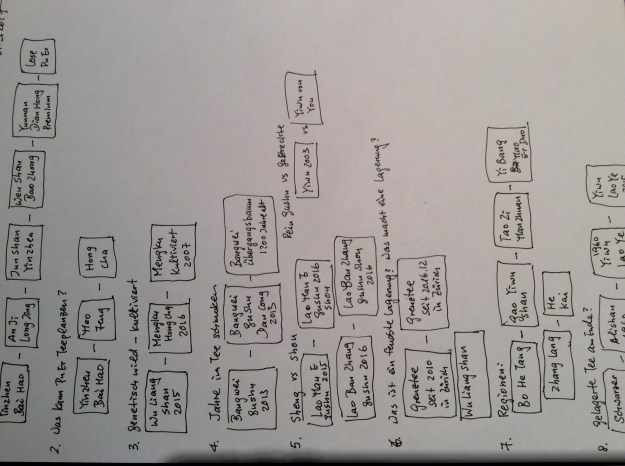 Yinzhen Bai Hao – An Ji Long Jing – Jun Shan Yinzhen – Wen Shan Bao Zhong – Yunnan Dian Hong Premium – Lose Pu Er
2. Was kann Pu Er Teepflanzen?
Yinzhen Bai Hao – Moo Feng – Hong Cha
3. Genetisch wild – kultiviert
Wu Liang Shan 2015 – Mengku Hong Cha 2016 – Mengku Kultiviert 2007
4. Jahre im Tee schmecken
Bangwei gushu 2013 – Bangwei gushu Dan Cong 2013 – Bangwei Übergangsbaum 1700 Jahre alt
5. Sheng vs Shou
Rein gushu vs gemischte
Lao Man E gushu 2015 – Lao Man E gushu 2016 Shou
Yiwu 2003 vs Yiwu von You
Lao Ban Zhang gushu 2016 – Lao Ban Zhang gushu Shou 2016
6. Was ist ein feuchte Lagerung? Was macht eine Lagerung?
Grenztee seit 2010 in Zürich – Grenztee seit 2016.12 in Zürich
Wu Liang Shan
7. Regionen:
Bo He Tang – Gao Yiwu Shan – Tao Zi – Yi Bang
Zhang Lang – He Kai
8. gelagerte Tee
Schwarzer – Alishan – 1960 Yiwu Lao Ye – Yiwu Lao Ye